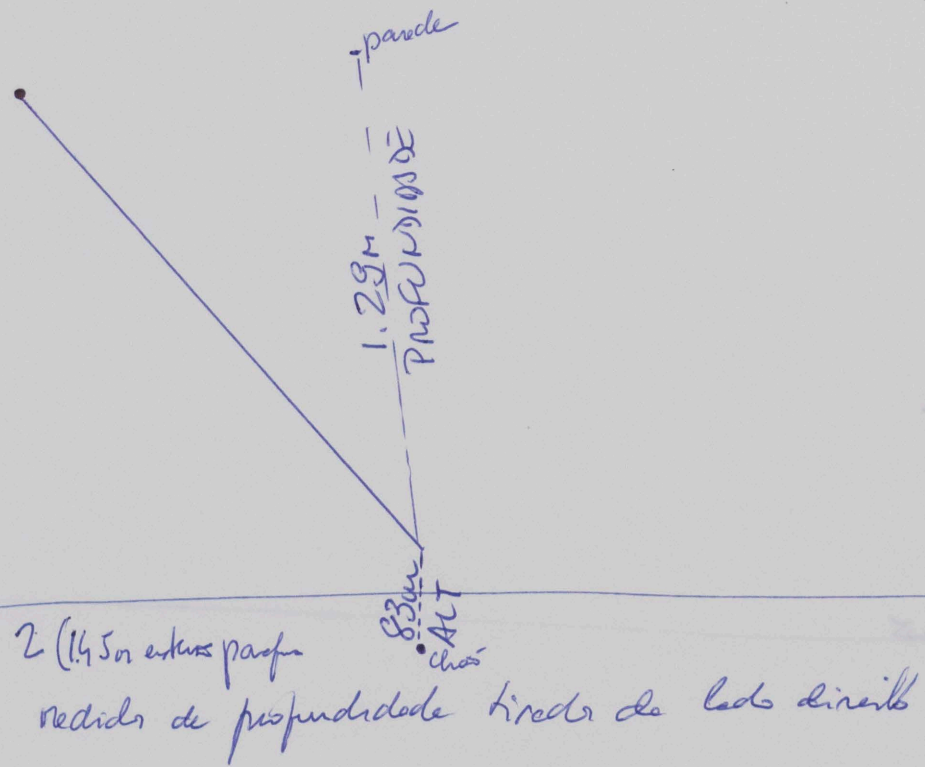 parede
1.29m
PROFUNDIDADE
83cm
ALT
chão
2 (1.45
medida de profundidade tirada do lado direito